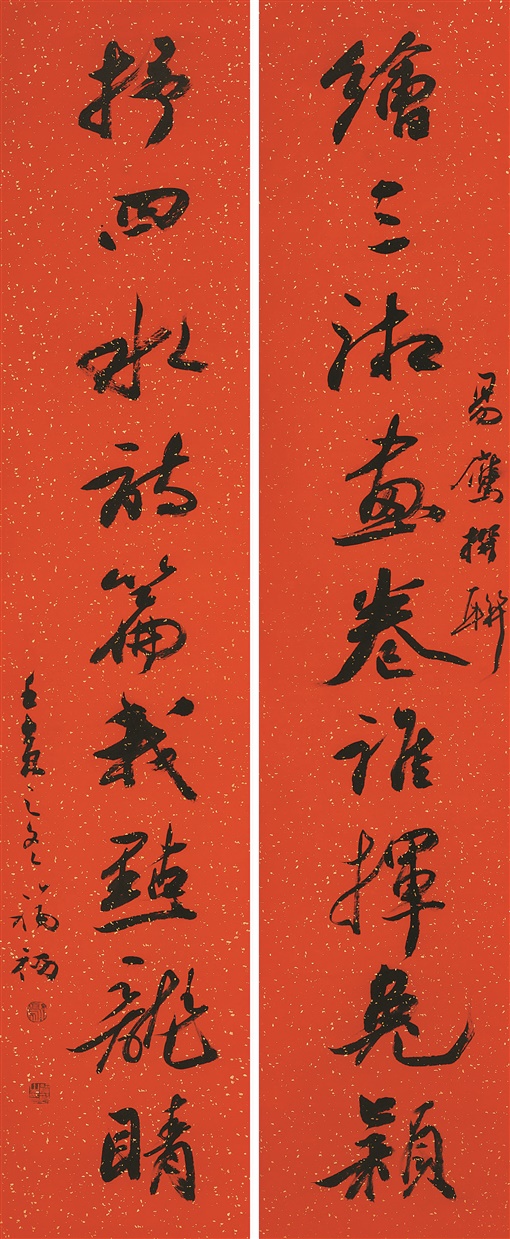 繪三湘畫卷誰揮兔穎
易鷹撰聯
抒四水詩篇我點龍睛
壬寅之冬